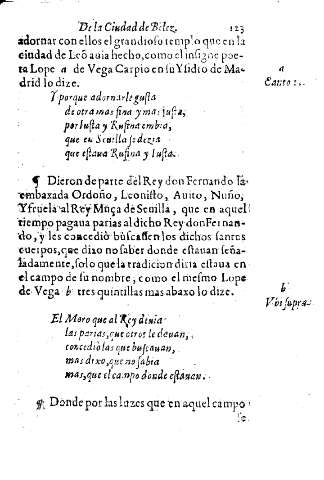 De la Ciudad de Bélez. 123
adornar con ellos el grandioso templo que en la
ciudad de Leō auia hecho, como el insigne poe-
ta Lope a de Vega Carpio en su Ysidro de Ma-
drid lo dize.
a
Canto 2.
Y porque adornarle gusta
de otra mas fina y mas justa,
por Iusta y Rufina embia,
que en Seuilla se dezia
que estaua Rufina y Iusta.
¶ Dieron de parte del Rey don Fernando la
embaxada Ordoño, Leonisto, Auito, Nuño,
Yfruela al Rey Muça de Seuilla, que en aquel
tiempo pagaua parias al dicho Rey don Fernan-
do, y les concedió buscassen los dichos santos
cuerpos, que dixo no saber donde estauan seña-
ladamente, solo que la tradicion dizia estaua en
el campo de su nombre, como el mesmo Lope
de Vega b tres quintillas mas abaxo lo dize.
b
Vbi supra.
El Moro que al Rey deuia
las parias, que otros le deuan,
concedió las que buscauan,
mas dixo, que no sabia
mas, que el campo donde estauan.
¶ Donde por las luzes que en aquel campo
se